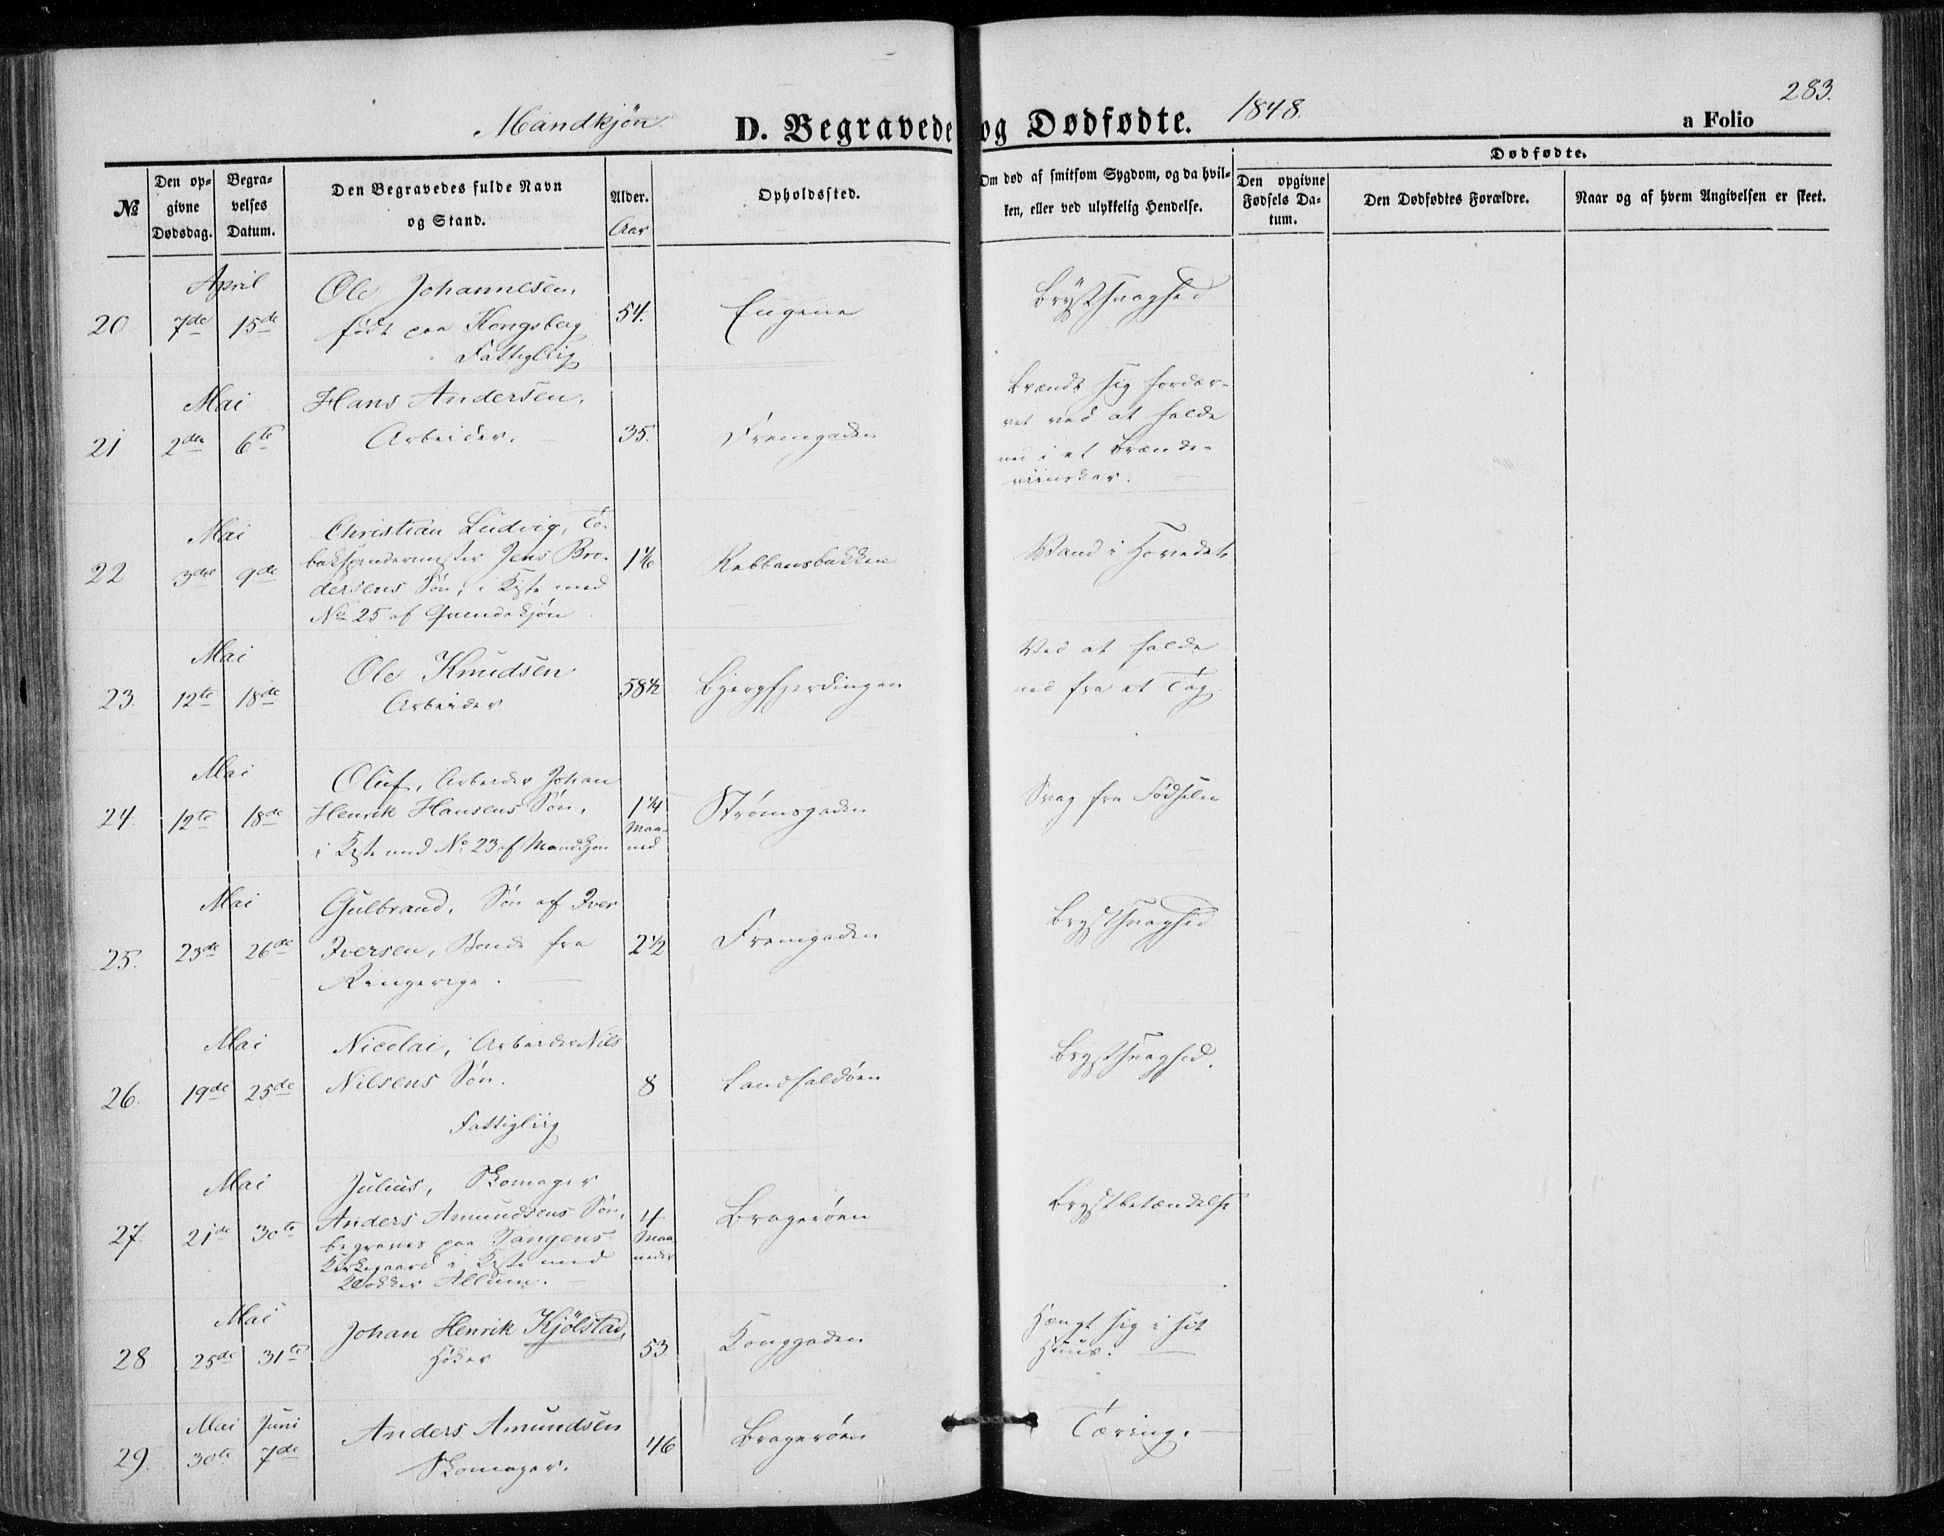 283.
Mandkjøn D. Begravede og Dødfødte. 1848.
a Folio
No
Den opgivne Dødsdag.
Begravelses Datum.
Den Begravedes fulde Navn og Stand.
Alder.
Aar
Opholdssted.
Om død af smitsom Sygdom, og da hvilken, eller ved ulykkelig Hendelse.
Dødfødte.
Den opgivne Fødsels Datum.
Den Dødfødtes Forældre.
Naar og af hvem Angivelsen er skeet.
April
20 7de 15de
Ole Johannesen,
født paa Kongsberg
Fattiglig
54.
Eugene
Brÿstsvaghed
Mai
21 2den 6te
Hans Andersen,
Arbeider.
35.
Fremgaden
Brændt sig fordær-
vet ved at falde
ned i et Brænde-
viinskar.
Mai
22 3die 9de
Christian Ludvig, To-
bakspindermester Jens Bro-
dersens Søn, i Kiste med
No 25 af Qvindekjøn
1 1/6
Rebbansbakken
Vand i Hovedet
Mai
23. 12te 18de
Ole Knudsen
Arbeider
58 1/2
Bjergfjerdingen
Ved at falde
ned fra et Tag.
Mai
24. 12te 18de
Oluf, Arbeider Johan
Henrik Hansens Søn,
i Kiste med No 23 af Mandkjøn
1 1/4
Maa-
ned
Strømsgaden
Svag fra Fødselen
Mai
25. 23de 26de
Gulbrand, Søn af Iver
Iversen, Bonde fra
Ringerige.
2 1/2
Fremgaden
Brystsvaghed
Mai
26. 19de 25de
Nicolai, Arbeider Nils
Nilsens Søn.
Fattigliig
8
Landfaldøen
Brystsvaghed.
Mai
27. 21de 30te
Julius, Skomager
Anders Amundsens Søn,
begraves paa Tangens
Kirkegaard i Kiste med
Klokker Allum.
4
Maa
neder
Bragerøen
Brystbetændelse
Mai
28 25de 31te
Johan Henrik Kjölstad,
Høker
53.
Konggaden
Hængt sig i sit
Huus.
Mai Juni
29. 30te 7de
Anders Amundsen
Skomager.
46
Bragerøen
Tæring.